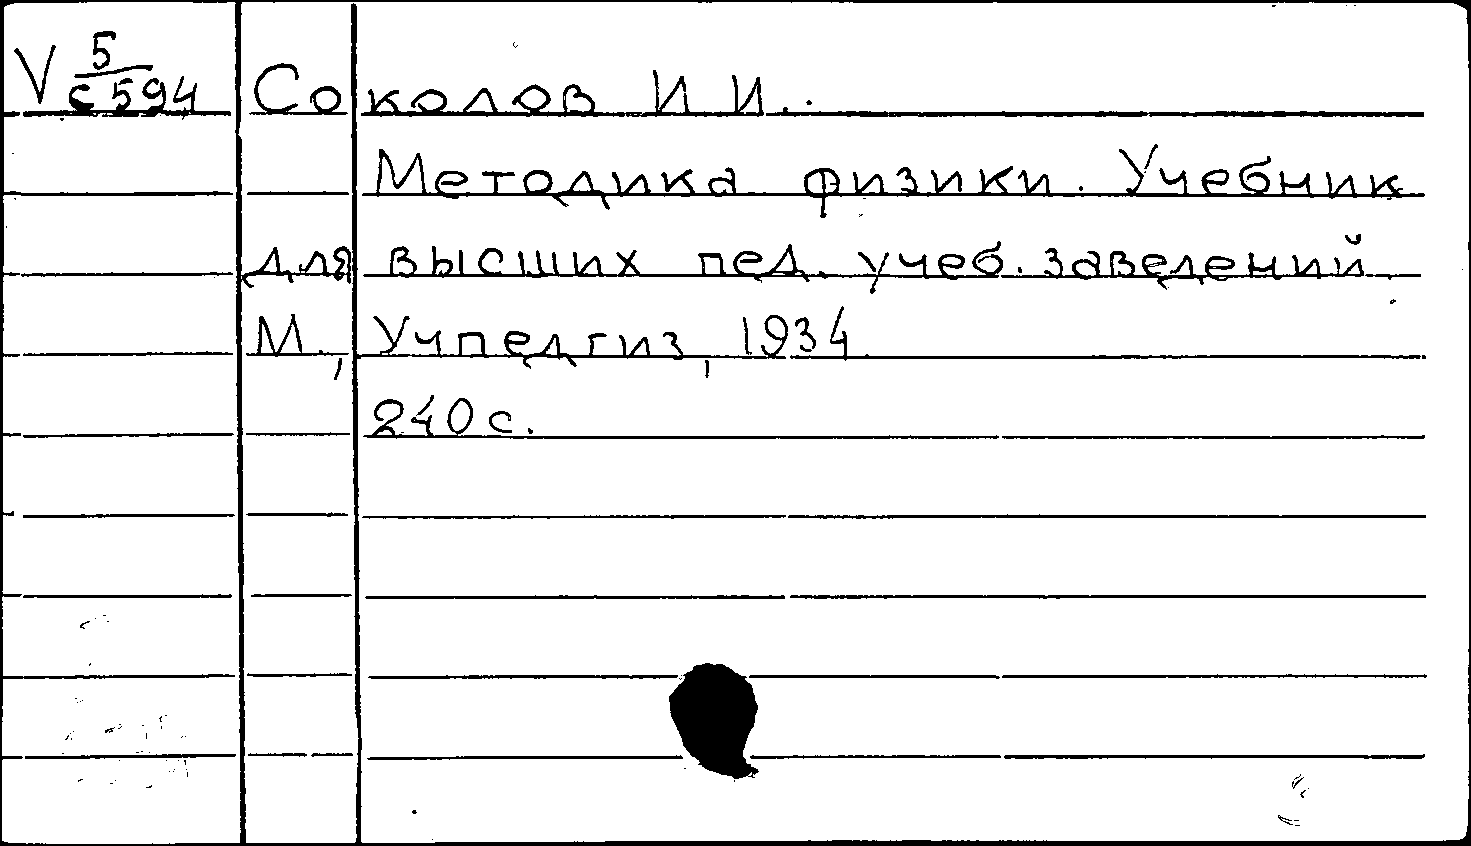 V 5/с594 Соколов И И.
Методика физики. Учебник
для высших пед. учеб. заведений
М., Учпедгиз, 1934
240 с.